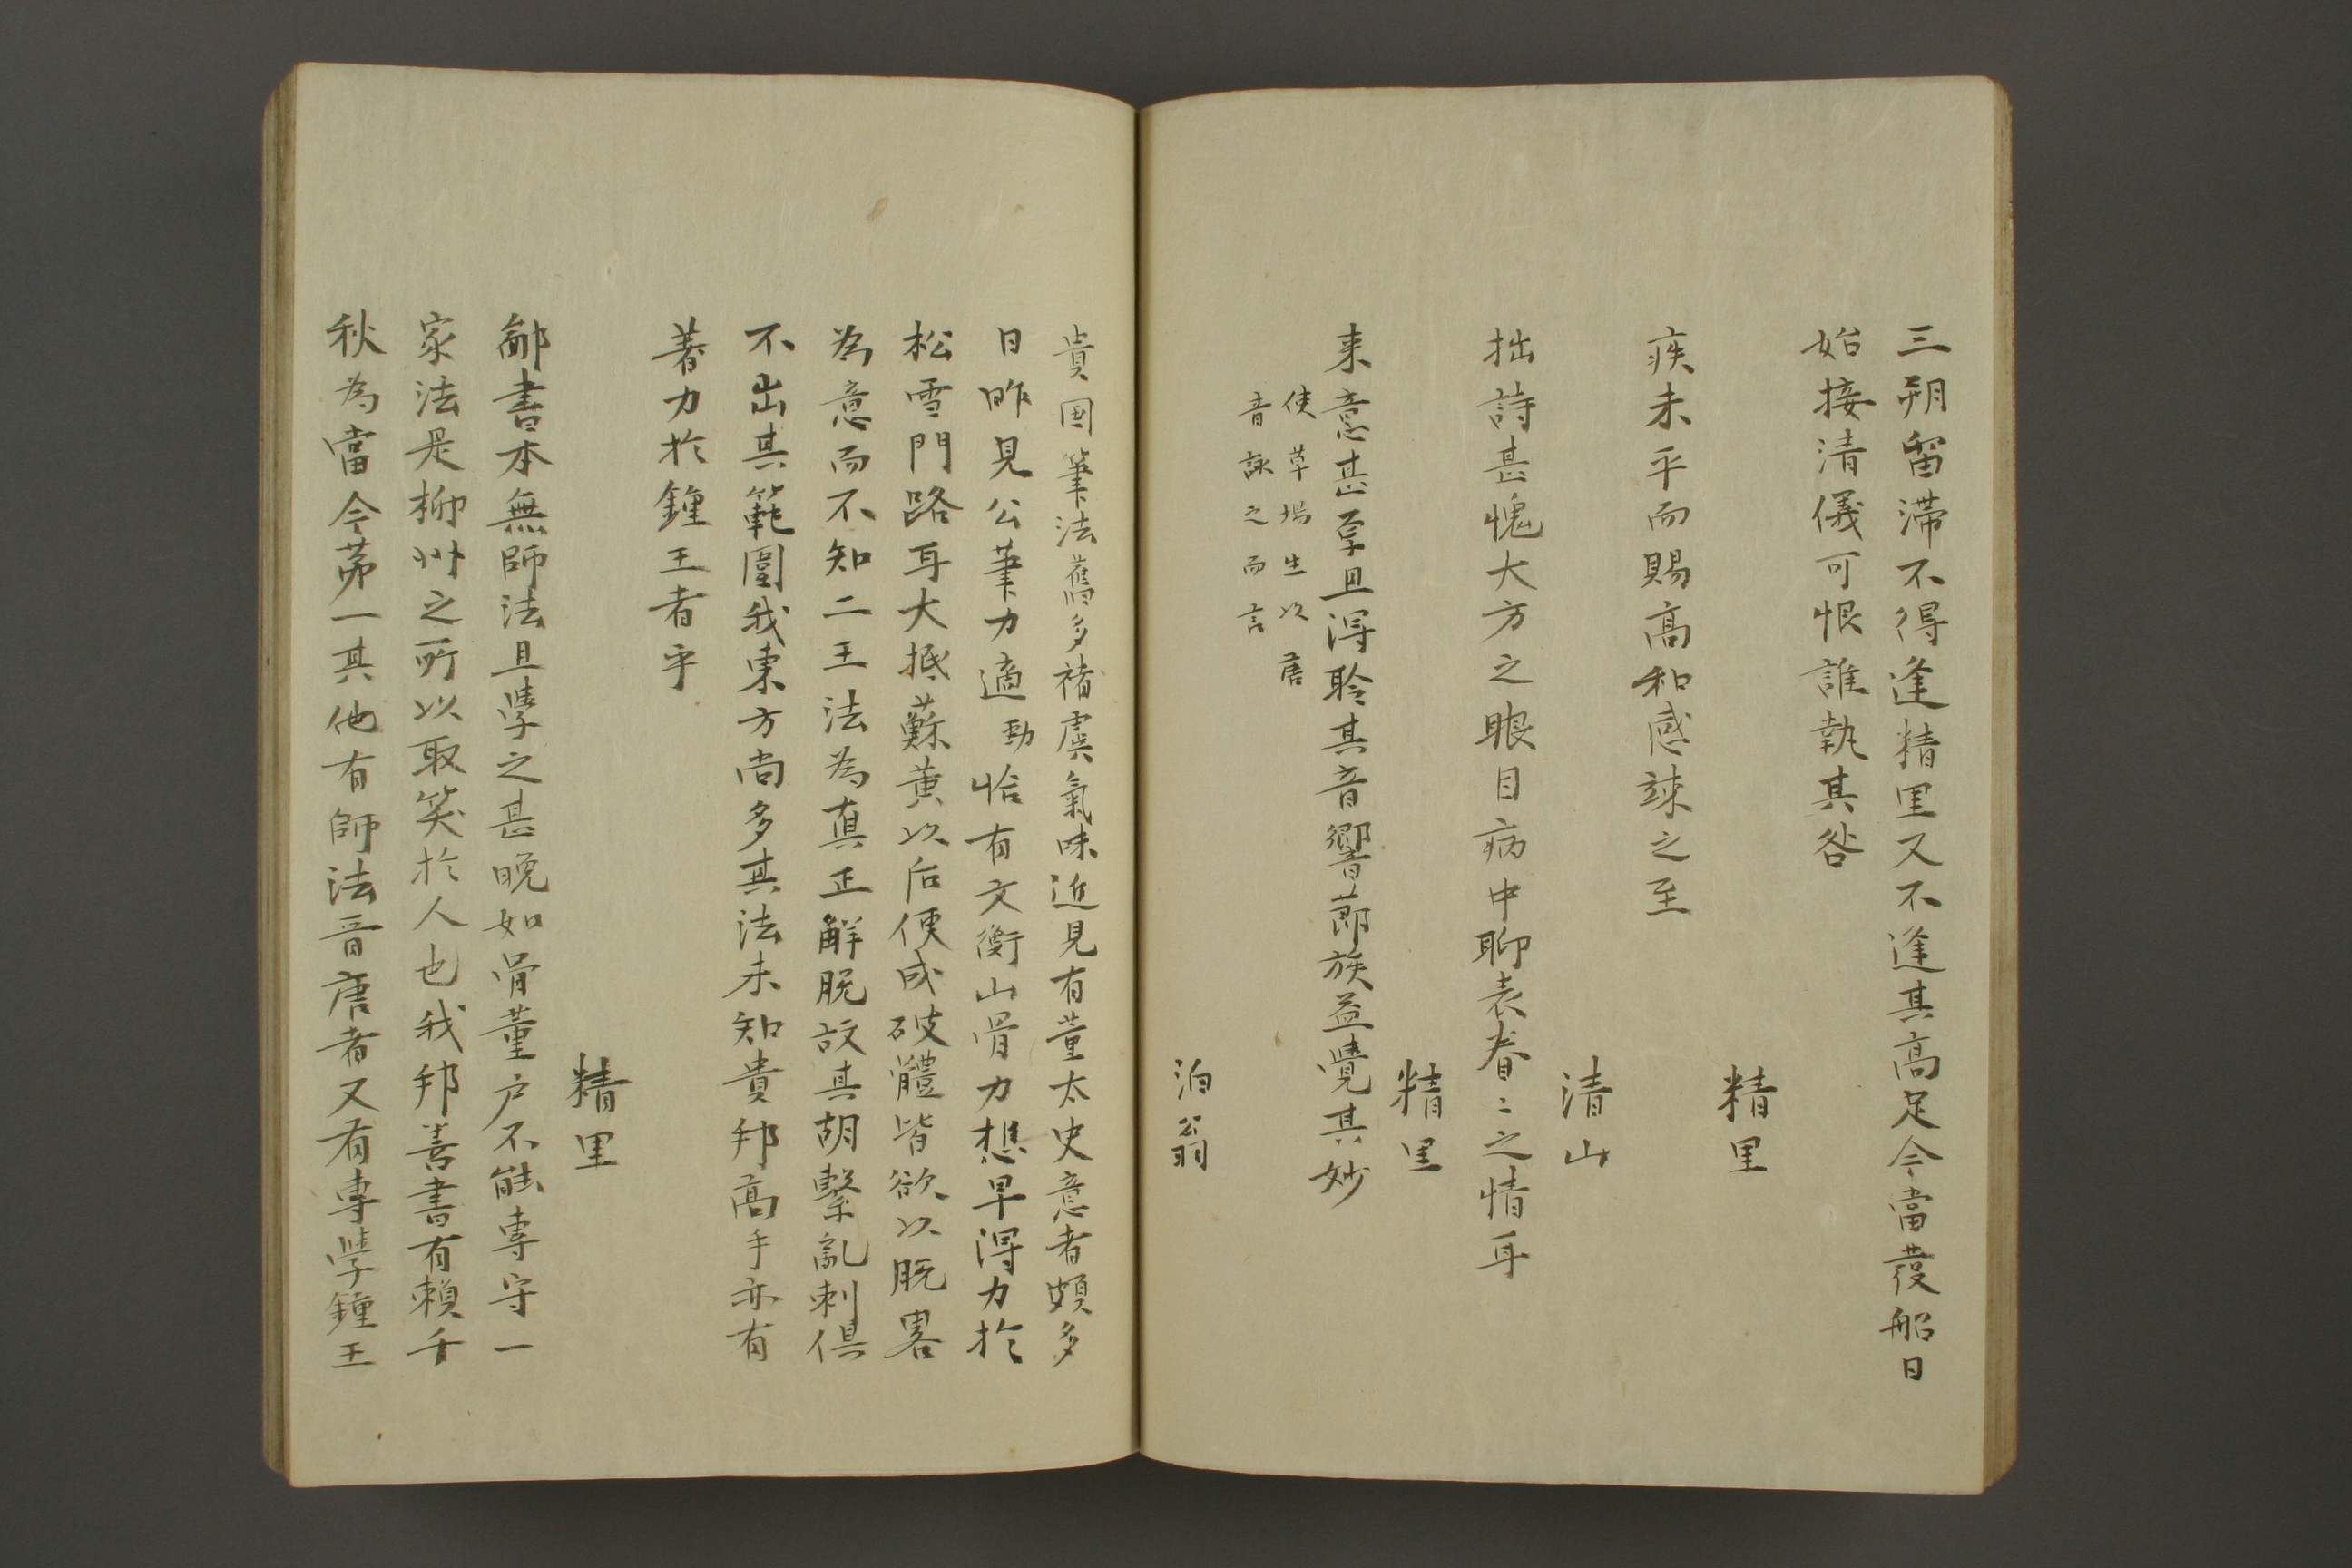 三朔留滞不得逢精里又不逢其高足今當發船日
始接清儀可恨誰執其咎
精里
疾未平而賜高和感竦之至
清山
拙詩甚愧大方之眼目病中聊表眷〻之情耳
精里
来意甚至且淂聆其音響節族益覺其妙
使草場生以唐
音詠之而言
泊翁
貴国筆法舊多褚虞氣味近見有董太史意者頗多
日昨見公筆力遒勁恰有文衡山骨力想早淂力於
松雪門路耳大抵蘇黄以后便成破體皆欲以脱畧
為意而不知二王法為真正解脱故其胡繫亂刺倶
不出其範圍我東方尚多其法未知貴邦高手亦有
著力於鍾王者乎
精里
鄙書本無師法且學之甚晩如骨董户不能専守一
家法是柳州之所以取笑於人也我邦善書有頼千
秋為當今第一其他有師法晋唐者又有専学鍾王